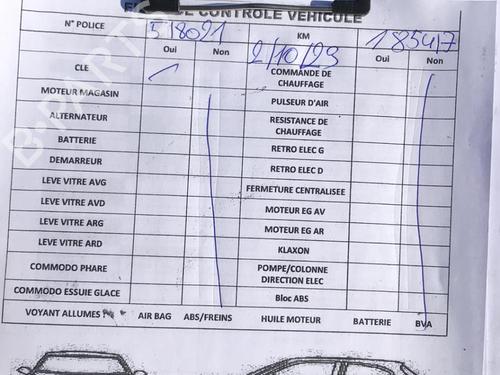 DE CONTROLE VEHICULE
N° POLICE 518021 KM 185417
Oui Non 2/10/23 Oui Non
CLE COMMANDE DE CHAUFFAGE
MOTEUR MAGASIN PULSEUR D'AIR
ALTERNATEUR RESISTANCE DE CHAUFFAGE
BATTERIE RETRO ELEC G
DEMARREUR RETRO ELEC D
LEVE VITRE AVG FERMETURE CENTRALISEE
LEVE VITRE AVD MOTEUR EG AV
LEVE VITRE ARG MOTEUR EG AR
LEVE VITRE ARD KLAXON
COMMODO PHARE POMPE/COLONNE DIRECTION ELEC
COMMODO ESSUIE GLACE Bloc ABS
VOYANT ALLUMES AIR BAG ABS/FREINS HUILE MOTEUR BATTERIE BVA